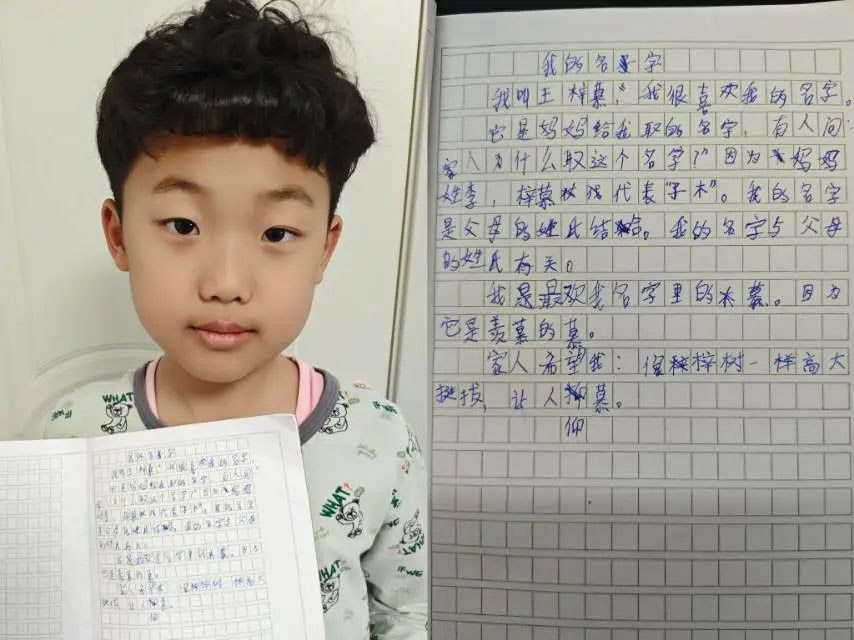 我的名字
我叫王梓慕，我很喜欢我的名字。
它是妈妈给我取的名字，有人问：
家人为什么取这个名字？"因为妈妈
姓李，梓慕代表"子木"。我的名字
是父母的姓氏结合。我的名字与父母
的姓氏有关。
我是最欢我名字里的木慕。因为
它是羡慕的慕。
家人希望我：像梓树一样高大
挺拔，让人仰慕。
WHAT?
WHAT?
IF WE
IF WE